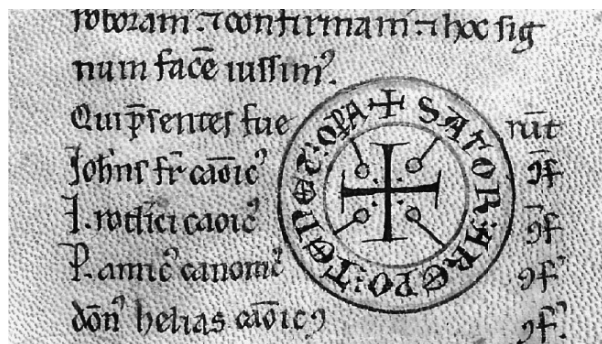 roboram' ⁊ confirmam' ⁊ hoc ſig
num facē iuſſimꝰ.
Qui p̄ſentes fue rūt
Joħns fr̄ caōicꝰ ꝯf
J. rodici caōicꝰ ꝯf
P. amicꝰ canonicꝰ ꝯfꝰ
dōnꝰ helias caōicꝰ ꝯfꝰ
✠ SATOR: AREPO: TENET: OPA